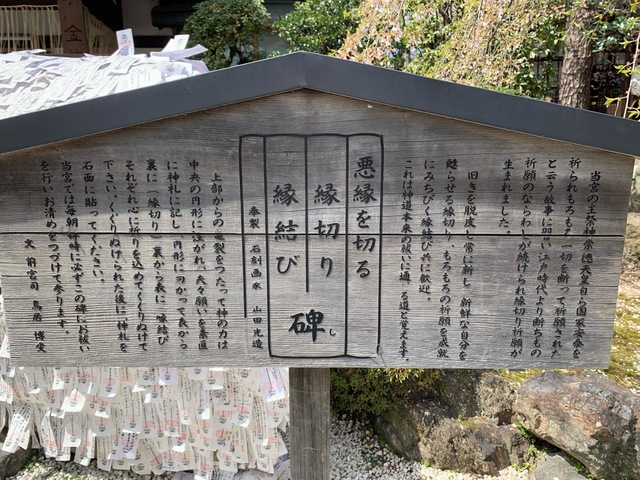 当宮の主祭神崇徳天皇自ら国家安泰を
祈られもろもろ一切を断って祈願された
と云う故事に習い江戸時代より断ちもの
祈願のならわしが続けられ縁切り祈願が
生まれました。
旧きを脱皮し常に新し 新鮮な自分を
甦らせる縁切り、もろもろの祈願を成就
にみちびく縁結び共に歓迎。
これは神道本来の祓いに通じる道と覚えます。
悪縁を切る
縁切り
縁結び
碑
し
奉製 石刻画家 山田光造
上部からの亀裂をつたって神の力は
中央の円形に注がれ、夫々願いを素直
に神札に記し、円形に向かって表から
裏に「縁切り」、裏から表に「縁結び」
それぞれ心に祈りを込めてくぐりぬけて
下さい。くぐりぬけられた後に神札を
石面に貼ってください。
当宮では毎朝八時に必ずこの碑にお祓い
を行いお清めをつづけて参ります。
文 前宮司 鳥居 博愛
金